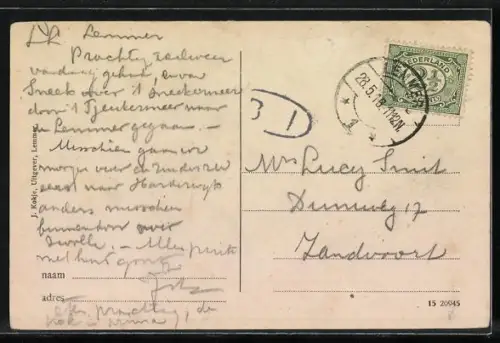 Lemmer
Prachtig zeilweer
vandaag gehad, en van
Sneek over 't Sneekermeer
door 't Tjeukermeer naar
de Lemmer gegaan. –
Misschien gaan we
morgen over de Zuiderzee
eerst naar Harderwijk
anders misschien
binnendoor over
Zwolle. – Alles
met hart
naam
adres
prachtig, de
J. Kokje, Uitgever, Lemmer
31
NEDERLAND
2½
LEMMER
28.5.18.11-12N.
Mrs Lucy Smit
Duinweg 17
Zandvoort
15 20945